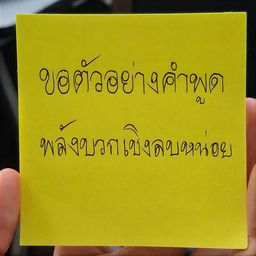 ขอตัวอย่างคำพูด
พลังบวกเชิงลบหน่อย